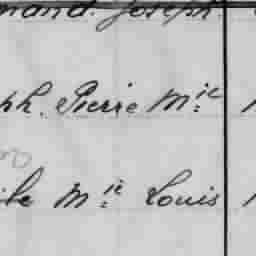 mand. Joseph.
ph. Pierre Mie
ile Mie Louis